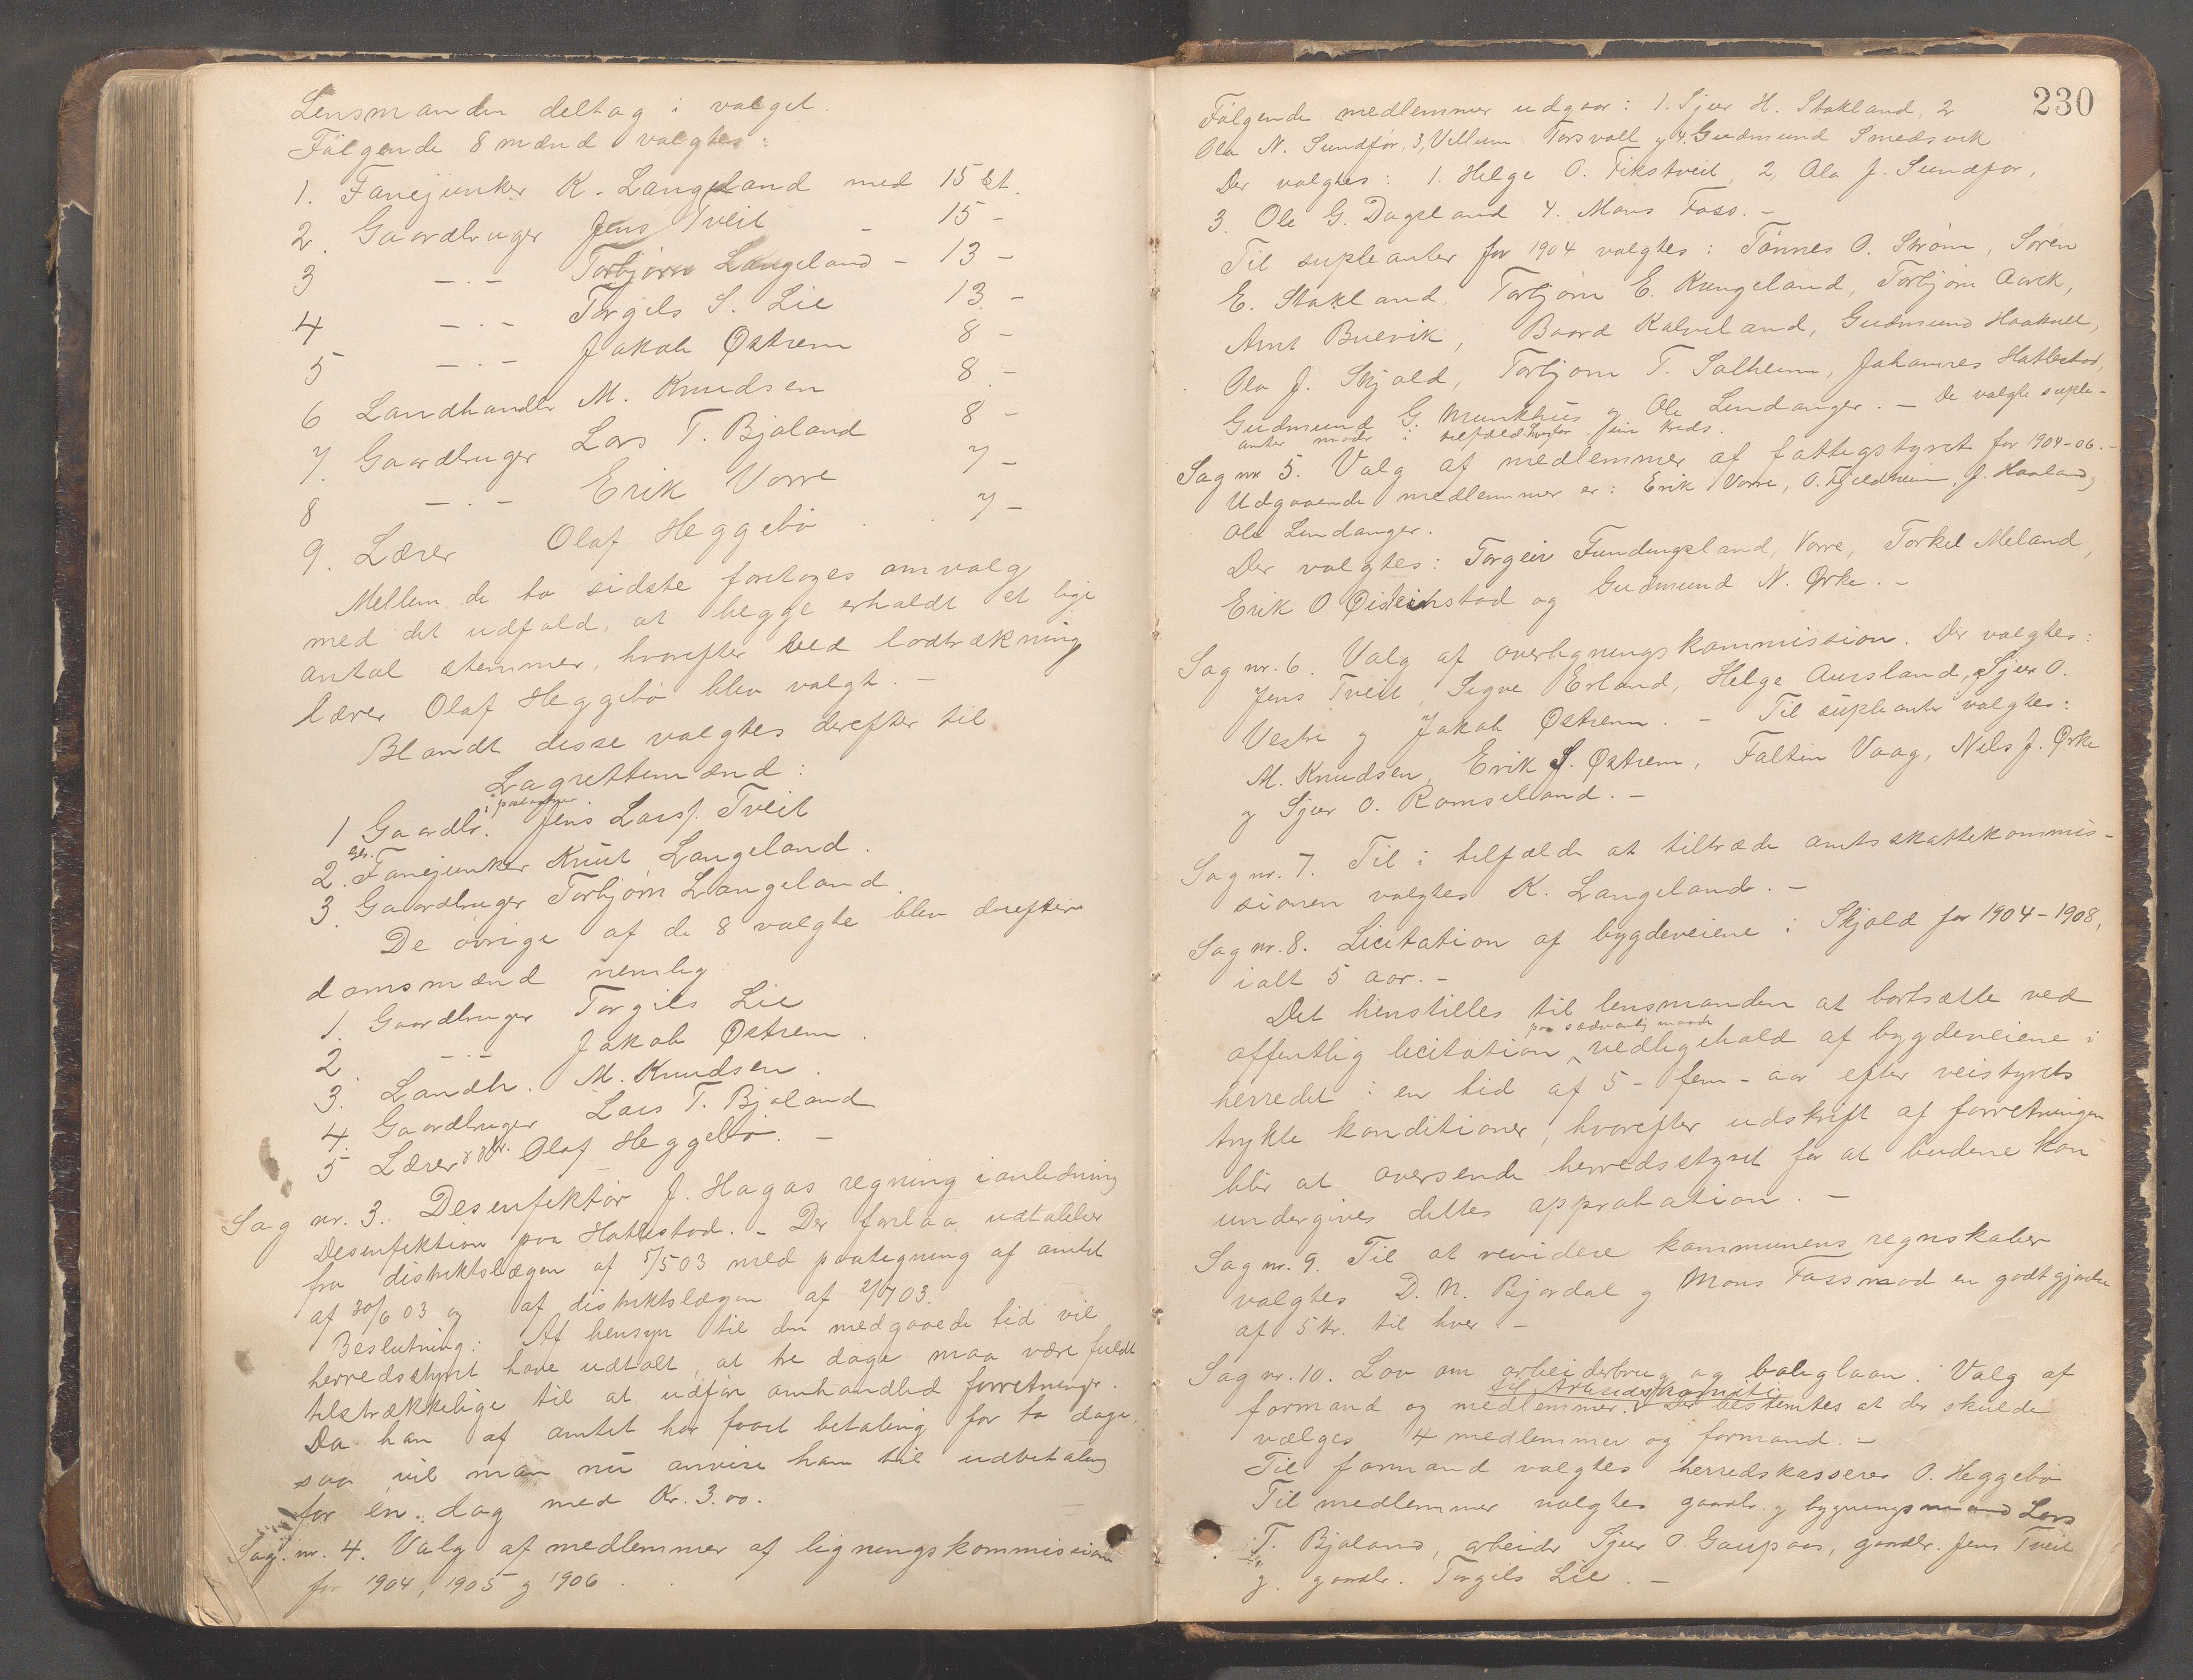 Lensmanden deltog i valget.
Følgende 8 mænd valgtes:
1. Fanejunker K. Langeland med 15 st.
2. Gaardbruger Jens Tveit - 15 -
3 -.- Torbjørn Langeland - 13 -
4 -.- Torgils S. Lie 13 -
5 -.- Jakob Østrem 8 -
6 Landhandler M. Knudsen 8 -
7. Gaardbruger Lars T. Bjoland 8 -
8 -.- Erik Vorre 7 -
9. Lærer Olaf Heggebø 7 -
Mellem de to sidste foretoges omvalg
med det udfald, at begge erholdt et lige
antal stemmer, hvorefter ved lodtrækning
lærer Olaf Heggebø blev valgt. -
Blandt disse valgtes derefter til
Lagrettemænd:
1 Gaardbr. Jens Lars. Tveit
2. Fanejunker Knut Langeland.
3. Gaardbruger Torbjørn Langeland.
De øvrige af de 8 valgte blev derefter
domsmænd nemlig:
1. Gaardbruger Torgils Lie
2 -.- Jakob Østrem.
3. Landh. M. Knudsen.
4. Gaardbruger Lars T. Bjoland
5 Lærer Olaf Heggebø. -
Sag nr. 3. Desenfektør J. Hagas regning i anledning
Desenfektion paa Hatlestad. - Der forlaa udtalelser
fra distriktslægen af 5/5 03 med paategning af amtet
af 30/6 03 og af distriktslægen af 2/7 03.
Beslutning: Af hensyn til den medgaaede tid vil
herredsstyret have udtalt, at tre dage maa være fuldt
tilstrækkelige til at udføre omhandled forretninger.
Da han af amtet har faaet betaling for to dage,
saa vil man nu anvise ham til udbetaling
for en dag med Kr. 3.00.
Sag. nr. 4. Valg af medlemmer af ligningskommission
for 1904, 1905 og 1906.
230
Følgende medlemmer udgaar: 1. Sjur H. Stakland, 2
Ola N. Sundfør, 3, Vellum Torsvoll og 4. Gudmund Smedsvik
Der valgtes: 1. Helge O. Fikstveit, 2, Ola J. Sundfør,
3. Ole G. Dagsland 4. Mons Foss. -
Til supleanter for 1904 valgtes: Tønnes O. Strøm, Søren
E. Stakland, Torbjørn E. Kungeland, Torbjørn Aarek,
Arnt Buevik, Baard Kalveland, Gudmund Haakull,
Ola J. Skjold, Torbjørn T. Solheim, Johannes Hatlestad,
Gudmund G. Munkhus og Ole Lindanger. - De valgte suple-
anter møder i tilfælde hver for sin kreds.
Sag nr 5. Valg af medlemmer af fattigstyret for 1904-06. -
Udgaaende medlemmer er: Erik Vorre, O. Fjeldheim, J. Haaland,
Ole Lindanger.
Der valgtes: Torgeir Fundingsland, Vorre, Torkel Meland,
Erik O Øisteinstad og Gudmund N. Ørke. -
Sag nr. 6. Valg af overligningskommission. Der valgtes:
Jens Tveit, Sigve Erland, Helge Aursland, Sjur O.
Vestre og Jakob Østrem. - Til supleanter valgtes:
M. Knudsen, Erik S. Østrem, Faltin Vaag, Nels J. Ørke
og Sjur O. Romseland. -
Sag nr. 7. Til i tilfælde at tiltræde amtsskattekommis-
sionen valgtes K. Langeland. -
Sag nr. 8. Licitation af bygdeveiene i Skjold for 1904-1908,
ialt 5 aar. -
Det henstilles til lensmanden at bortsætte ved
paa sædvanlig maade
offentlig licitation vedligehold af bygdeveiene i
herredet i en tid af 5 - fem - aar efter veistyrets
trykte konditioner, hvorefter udskrift af forretningen
blir at oversende herredsstyret for at budene kan
undergives dettes approbation. -
Sag nr. 9. Til at revidere kommunens regnskaber
valgtes D. N. Bjordal og Mons Foss mod en godtgjørelse
af 5 kr. til hver. -
Sag nr. 10. Lov om arbeiderbrug og boliglaan. Valg af
formand og medlemmer. Det bestemtes at der skulde
vælges 4 medlemmer og formand. -
Til formand valgtes herredskasserer O. Heggebø
Til medlemmer valgtes gaardbr. og bygningsmand Lars
T. Bjoland, arbeider Sjur O. Gaupaas, gaardbr. Jens Tveit
og gaardbr. Torgils Lie. -